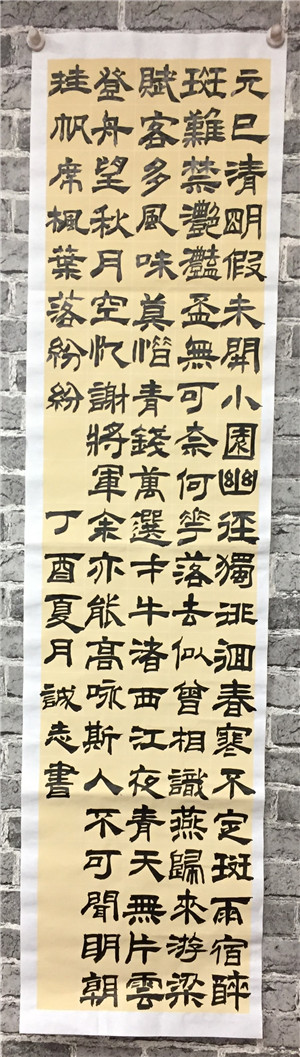 元巳清明假未開小園幽徑獨徘徊春寒不定斑雨宿醉
斑難禁灩灩盃無可奈何花落去似曾相識燕歸來游梁
賦客多風味莫惜青錢萬選才牛渚西江夜青天無片雲
登舟望秋月空忆謝將軍余亦能高咏斯人不可聞明朝
挂帆席楓葉落紛紛
丁酉夏月誠志書